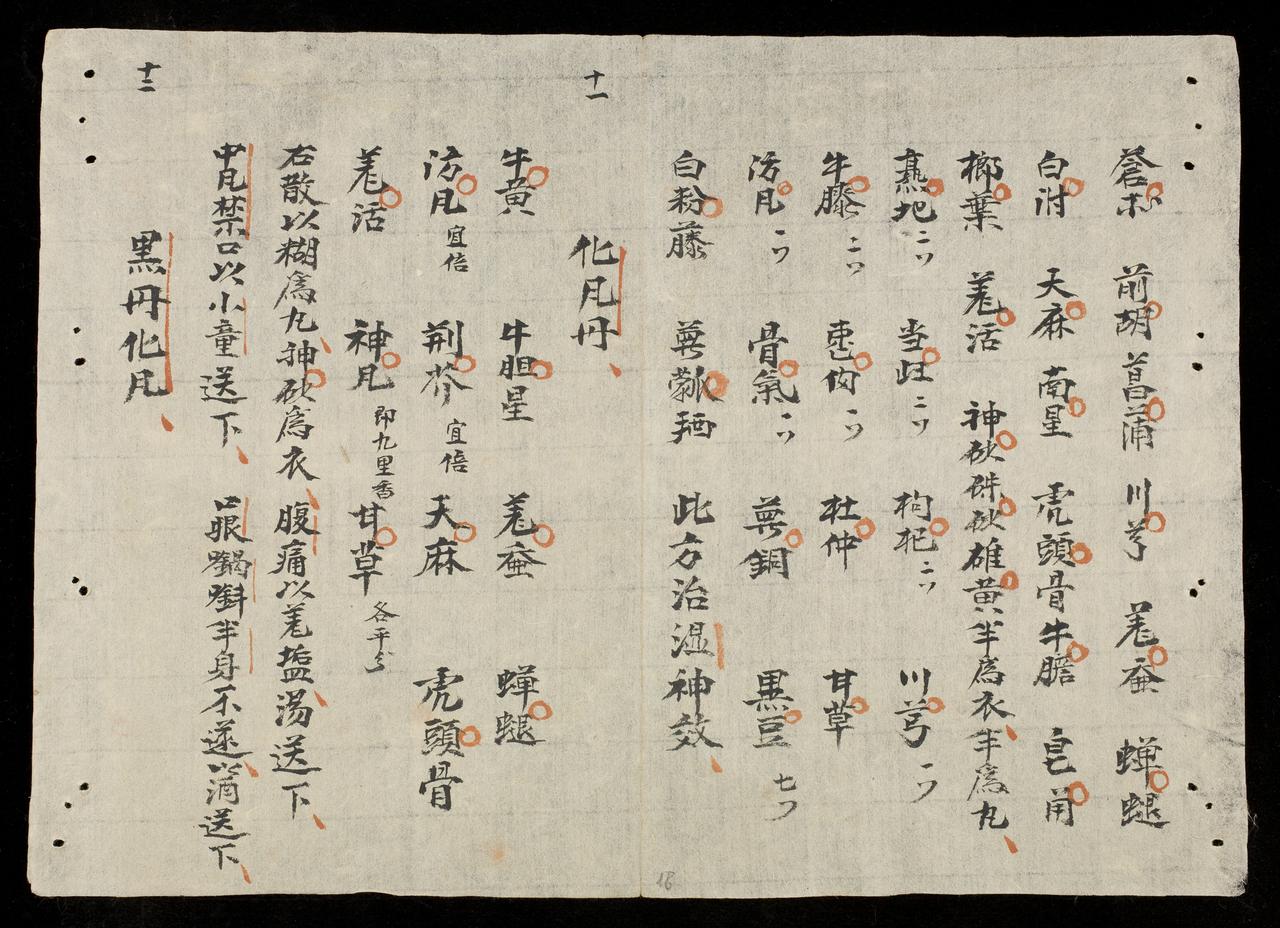 蒼朮 前胡 菖蒲 川芎 羌蚕 蟬蜕
白附 天麻 南星 虎頭骨 牛膽 皂角
榔葉 羌活 神砂硃砂雄黄半為衣半為丸
熟地二 当歸二 枸杞二 川芎一
牛膝二 一 杜仲 甘草
防凡二 骨氣一 萆銅 黒豆七
白粉藤 萆 此方治湿神效
十一
化凡丹
牛黄 牛胆星 羌蚕 蟬蜕
防凡宜倍 荆芥宜倍 天麻 虎頭骨
羌活 神凡即九里香 甘草各平分
右散以糊為丸神砂為衣 腹痛以羌塩湯送下
中凡禁口以小童送下 口眼 半身不遂以酒送下
十二
黒丹化凡
18